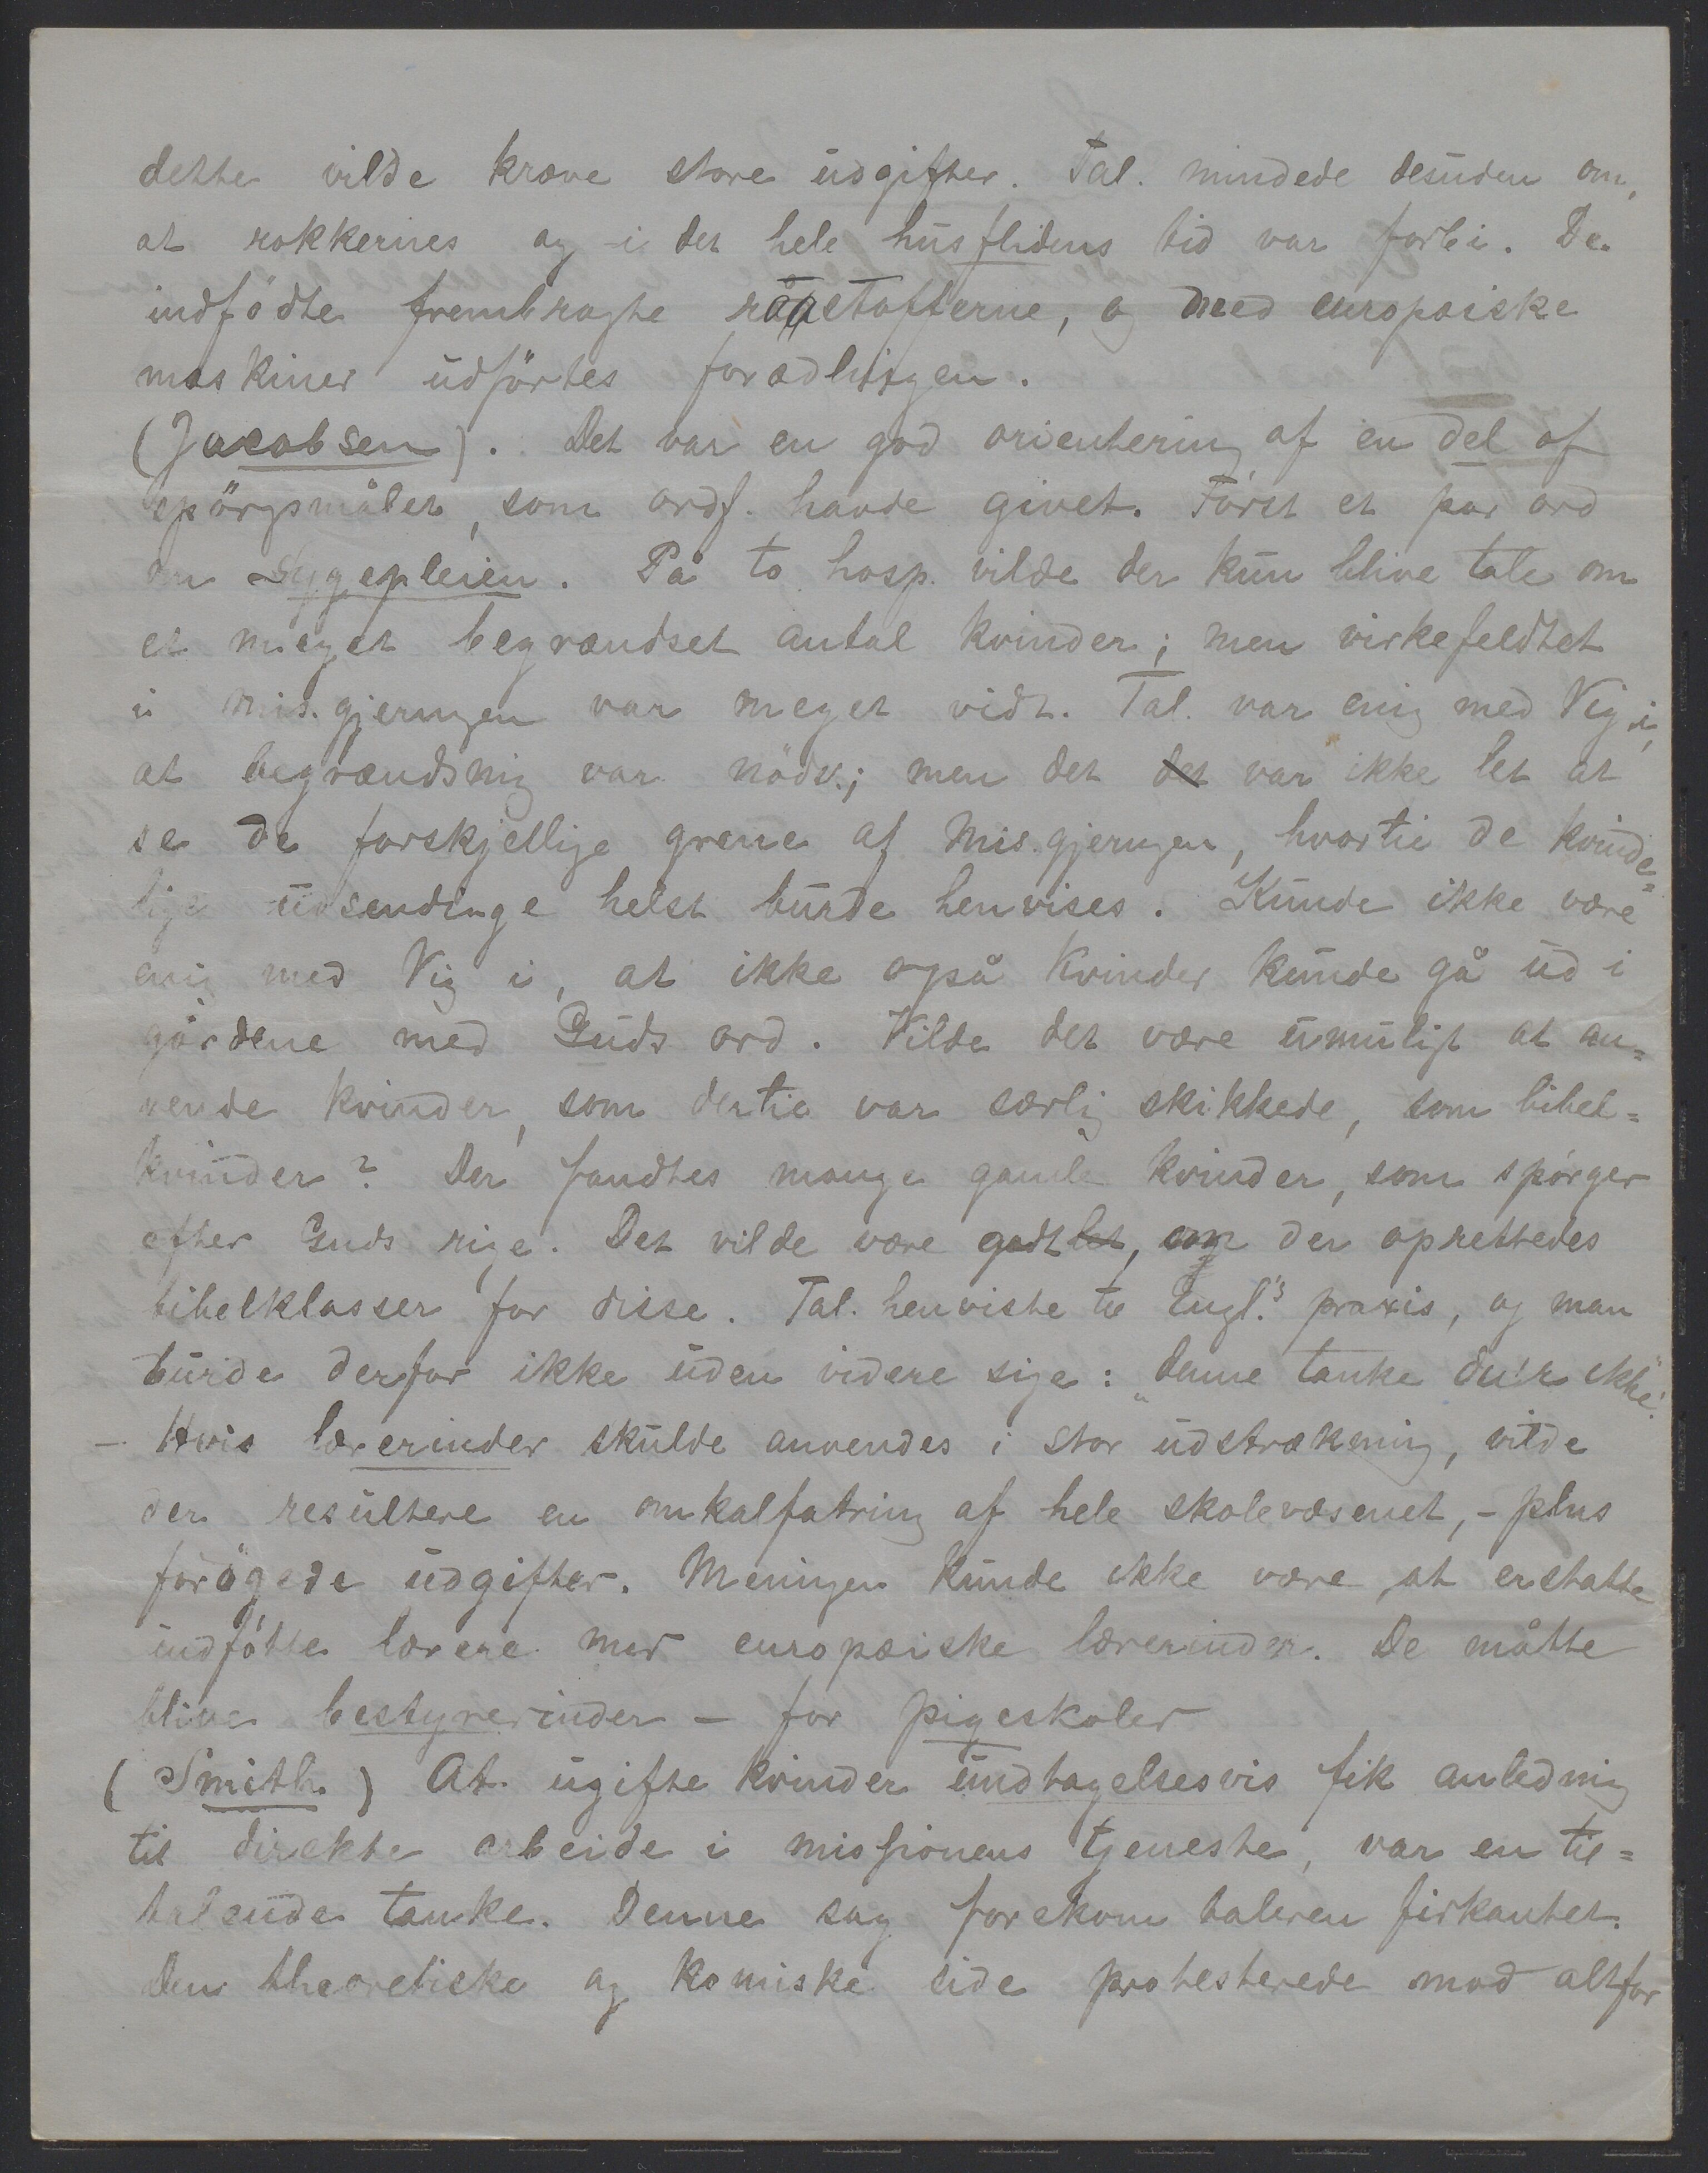 dette vilde kræve store udgifter. Tal. mindede desuden om,
at rokkernes og i det hele husflidens tid var forbi. De
indfödte frembragte råstofferne, og med europæiske
maskiner udførtes forædlingen.
(Jacobsen). Det var en god orientering af en del af
spörgsmålet, som ordf. havde givet. Först et par ord
om Sygepleien. På to hosp. vilde der kun blive tale om
et meget begrændset antal kvinder; men virkefeldtet
i mis.gjerningen var meget vidt. Tal. var enig med Vig i,
at begrændsning var nödv.; men det det var ikke let at
se de forskjellige grene af Mis.gjerningen, hvortil de kvinde=
lige udsendinge helst burde henvises. Kunde ikke være
enig med Vig i, at ikke også kvinder kunde gå ud i
gårdene med Guds ord. Vilde det være umuligt at an=
vende kvinder, som dertil var særlig skikkede, som bibel=
kvinder? Der fandtes mange gamle kvinder, som spörger
efter Guds rige. Det vilde være godt let, om der oprettedes
bibelklasser for disse. Tal. henviste til Engl.'s praxis, og man
burde derfor ikke uden videre sige: "denne tanke du'r ikke".
- Hvis lærerinder skulde anvendes i stor udstrækning, vilde
der resultere en omkalfatring af hele skolevæsenet, - plus
forögede udgifter. Meningen kunde ikke være at erstatte
indfötte lærere med europæiske lærerinder. De måtte
blive bestyrerinder - for pigeskoler
(Smith.) At ugifte kvinder undtagelsesvis fik anledning
til direkte arbeide i missionens tjeneste, var en til=
talende tanke. Denne sag forekom taleren firkantet.
Den theoretiske og komiske side protesterede mod altfor